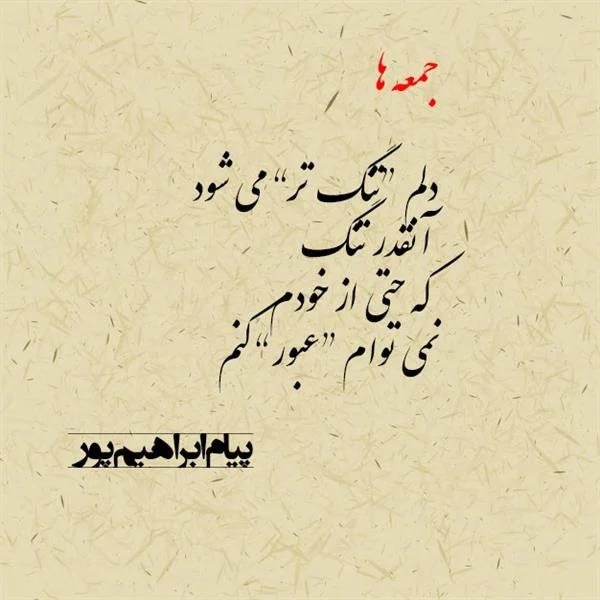 جمعه ها
دلم "تنگ تر" می شود
آنقدر تنگ
که حتی از خودم
نمی توام "عبور" کنم
پیام ابراهیم پور